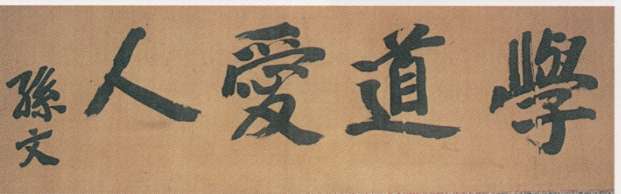 學道愛人
孫文